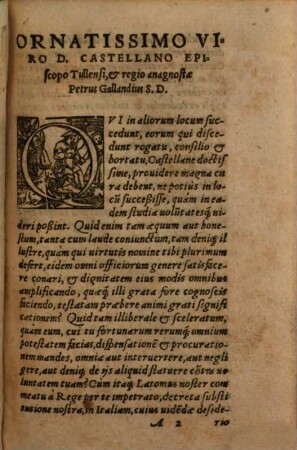 ORNATISSIMO VI-
RO D. CASTELLANO EPI-
scopo Tullensi, & regio anagnostæ
Petrus Gallandius S. D.
QVI in aliorum locum suc-
cedunt, eorum qui disce-
dunt rogatu, consilio &
hortatu, Castellane doctis
sime, prouidere magna cu
ra debent, ne potius in lo-
cū successisse, quam in ea-
dem studia uolūtatesq́; ui-
deri poßint. Quid enim tam æquum aut hone-
stum, tanta cum laude coniunctum, tam deniq́; il
lustre, quàm qui uirtutis nomine tibi plurimum
defert, eidem omni officiorum genere satisface-
re conari, & dignitatem eius modis omnibus
amplificando, quæq́; illi grata fore cognoscis
faciundo, testatam præbere animi grati signifi
cationem? Quid tam illiberale & sceleratum,
quàm eum, cui tu fortunarum rerumq́; omnium
potestatem facias, dispensationē & procuratio-
nem mandes, omnia aut interuertere, aut negli
gere, aut deniq; de ijs aliquid statuere cōtra uo
luntatem tuam? Cum itaq; Latomus noster com
meatu à Rege per te impetrato, decreta substi
tutione nostra, in Italiam, cuius uidēdæ deside-
A 2 rio